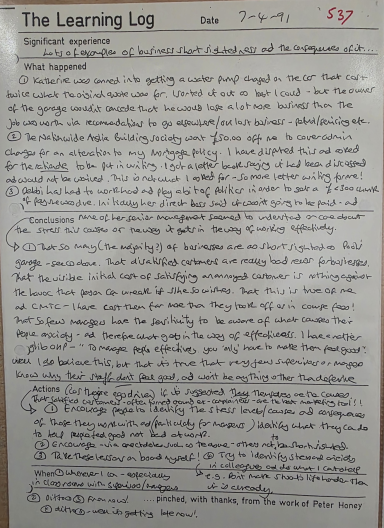 The Learning Log Date 7-4-91 537
Significant experience
Lots of examples of business short sightedness and the consequences of it...
What happened
① Katherine was conned into getting a water pump changed on the car that cost
twice what the original quote was for. I sorted it out as best I could - but the owner
of the garage wouldn't concede that he would lose a lot more business than the
job was worth via recommendations to go elsewhere/our lost business - petrol/servicing etc.
② The Nationwide Anglia Building Society want £50.00 off me to cover admin
charges for an alteration to my mortgage policy. I have disputed this and asked
for the to be put in writing. I got a letter back saying it had been discussed
and would not be waived. This is not what I asked for - so more letter writing for me!
③ Debbi has had to work hard and play a bit of politics in order to get a
of pay rise due. Initially her direct boss said it wasn't going to be paid - and
Conclusions none of her senior management seemed to understand or care about
the stress this causes or the way it gets in the way of working effectively.
① That so many (the majority?) of businesses are as short sighted as
garage - see above. That dissatisfied customers are really bad news for businesses.
That the visible initial cost of satisfying an annoyed customer is nothing against
the havoc that person can wreak if s/he so wishes. That this is true of me
and - I have cost them far more than they took off me in course fees!
That so few managers have the sensitivity to be aware of what causes their
people anxiety - and therefore what gets in the way of effectiveness. I have a rather
- "To manage people effectively you 'only' have to make them feel good".
Well I do believe this, but that it's true that very few supervisors or managers
know why their staff don't feel good, and won't be anything other than defensive
Actions (cos they're egotistical) if it is suggested they themselves are the cause.
That satisfied customers - often turned round ex-complainers - are the best marketing tool!!
① Encourage people to identify the stress levels/causes and consequences
of those they work with and (particularly for managers) identify what they can do
to help people feel good not bad at work.
② Encourage - via anecdotes such as the above - others not to be short sighted.
③ Take these lessons on board myself! ④ Try to identify stress and anxiety
in colleagues and do what I can to help
When ① Whenever I can - especially e.g. don't make Sheila's life harder than
in classroom with supervisors/managers it is already
② Ditto ③ From now! .... pinched, with thanks, from the work of Peter Honey
④ Ditto ③ - well it's getting late now!